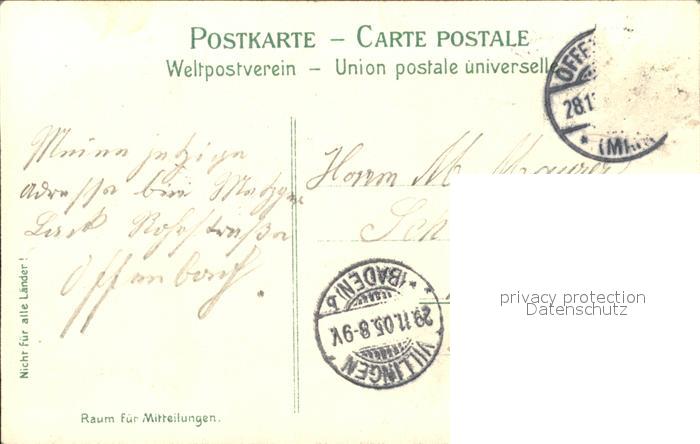 POSTKARTE – CARTE POSTALE
Weltpostverein – Union postale universelle
OFFE
28.1
* (MAIN
Meine jetzige
Adresse bei Metzger
Rohrstraße
Offenbach.
Herrn M. Maurer
Sch
* (BADEN) *
29.11.05.8-9V.
VILLINGEN
privacy protection
Datenschutz
Nicht für alle Länder!
Raum für Mitteilungen.